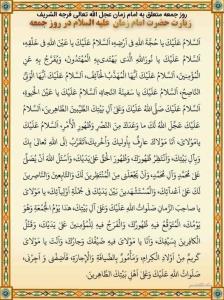 روز جمعه متعلق به امام زمان عجل الله تعالی فرجه الشریف
زیارت حضرت امام زمان علیه السلام در روز جمعه
اَلسَّلامُ عَلَیْکَ یا حُجَّةَ اللهِ فی اَرْضِهِ، اَلسَّلامُ عَلَیْکَ یا عَیْنَ اللهِ فی خَلْقِهِ،
اَلسَّلامُ عَلَیْکَ یا نُورَ اللهِ الَّذی یَهْتَدی بِهِ الْمُهْتَدُونَ، وَیُفَرَّجُ بِهِ عَنِ
الْمُؤْمِنینَ، اَلسَّلامُ عَلَیْکَ اَیُّهَا الْمُهَذَّبُ الْخائِفُ، اَلسَّلامُ عَلَیْکَ اَیُّهَا الْوَلِیُّ
النّاصِحُ، اَلسَّلامُ عَلَیْکَ یا سَفینَةَ النَّجاةِ، اَلسَّلامُ عَلَیْکَ یا عَیْنَ الْحَیوةِ،
اَلسَّلامُ عَلَیْکَ صَلَّی اللهُ عَلَیْکَ وَعَلی آلِ بَیْتِکَ الطَّیِّبینَ الطّاهِرینَ، اَلسَّلامُ
عَلَیْکَ عَجَّلَ اللهُ لَکَ ما وَعَدَکَ مِنَ النَّصْرِ وَظُهُورِ الْاَمْرِ، اَلسَّلامُ عَلَیْکَ
یا مَوْلایَ، اَنَا مَوْلاکَ عارِفٌ بِاُولیکَ وَاُخْریکَ، اَتَقَرَّبُ اِلَی اللهِ تَعالی بِکَ
وَبِآلِ بَیْتِکَ، وَاَنْتَظِرُ ظُهُورَکَ وَظُهُورَ الْحَقِّ عَلی یَدَیْکَ، وَاَسْئَلُ اللهَ اَنْ یُصَلِّیَ
عَلی مُحَمَّدٍ وَآلِ مُحَمَّدٍ، وَاَنْ یَجْعَلَنی مِنَ الْمُنْتَظِرینَ لَکَ وَالتّابِعینَ وَالنّاصِرینَ
لَکَ عَلی اَعْدائِکَ، وَالْمُسْتَشْهَدینَ بَیْنَ یَدَیْکَ فی جُمْلَةِ اَوْلِیائِکَ، یا مَوْلایَ
یا صاحِبَ الزَّمانِ صَلَواتُ اللهِ عَلَیْکَ وَعَلی آلِ بَیْتِکَ، هذا یَوْمُ الْجُمُعَةِ وَهُوَ
یَوْمُکَ، الْمُتَوَقَّعُ فیهِ ظُهُورُکَ، وَالْفَرَجُ فیهِ لِلْمُؤْمِنینَ عَلی یَدَیْکَ، وَقَتْلُ
الْکافِرینَ بِسَیْفِکَ، وَاَنَا یا مَوْلایَ فیهِ ضَیْفُکَ وَجارُکَ، وَاَنْتَ یا مَوْلایَ
کَریمٌ مِنْ اَوْلادِ الْکِرامِ، وَمَأْمُورٌ بِالضِّیافَةِ وَالْاِجارَةِ، فَاَضِفْنی وَ اَجِرْنی،
صَلَواتُ اللهِ عَلَیْکَ وَعَلی اَهْلِ بَیْتِکَ الطّاهِرینَ.